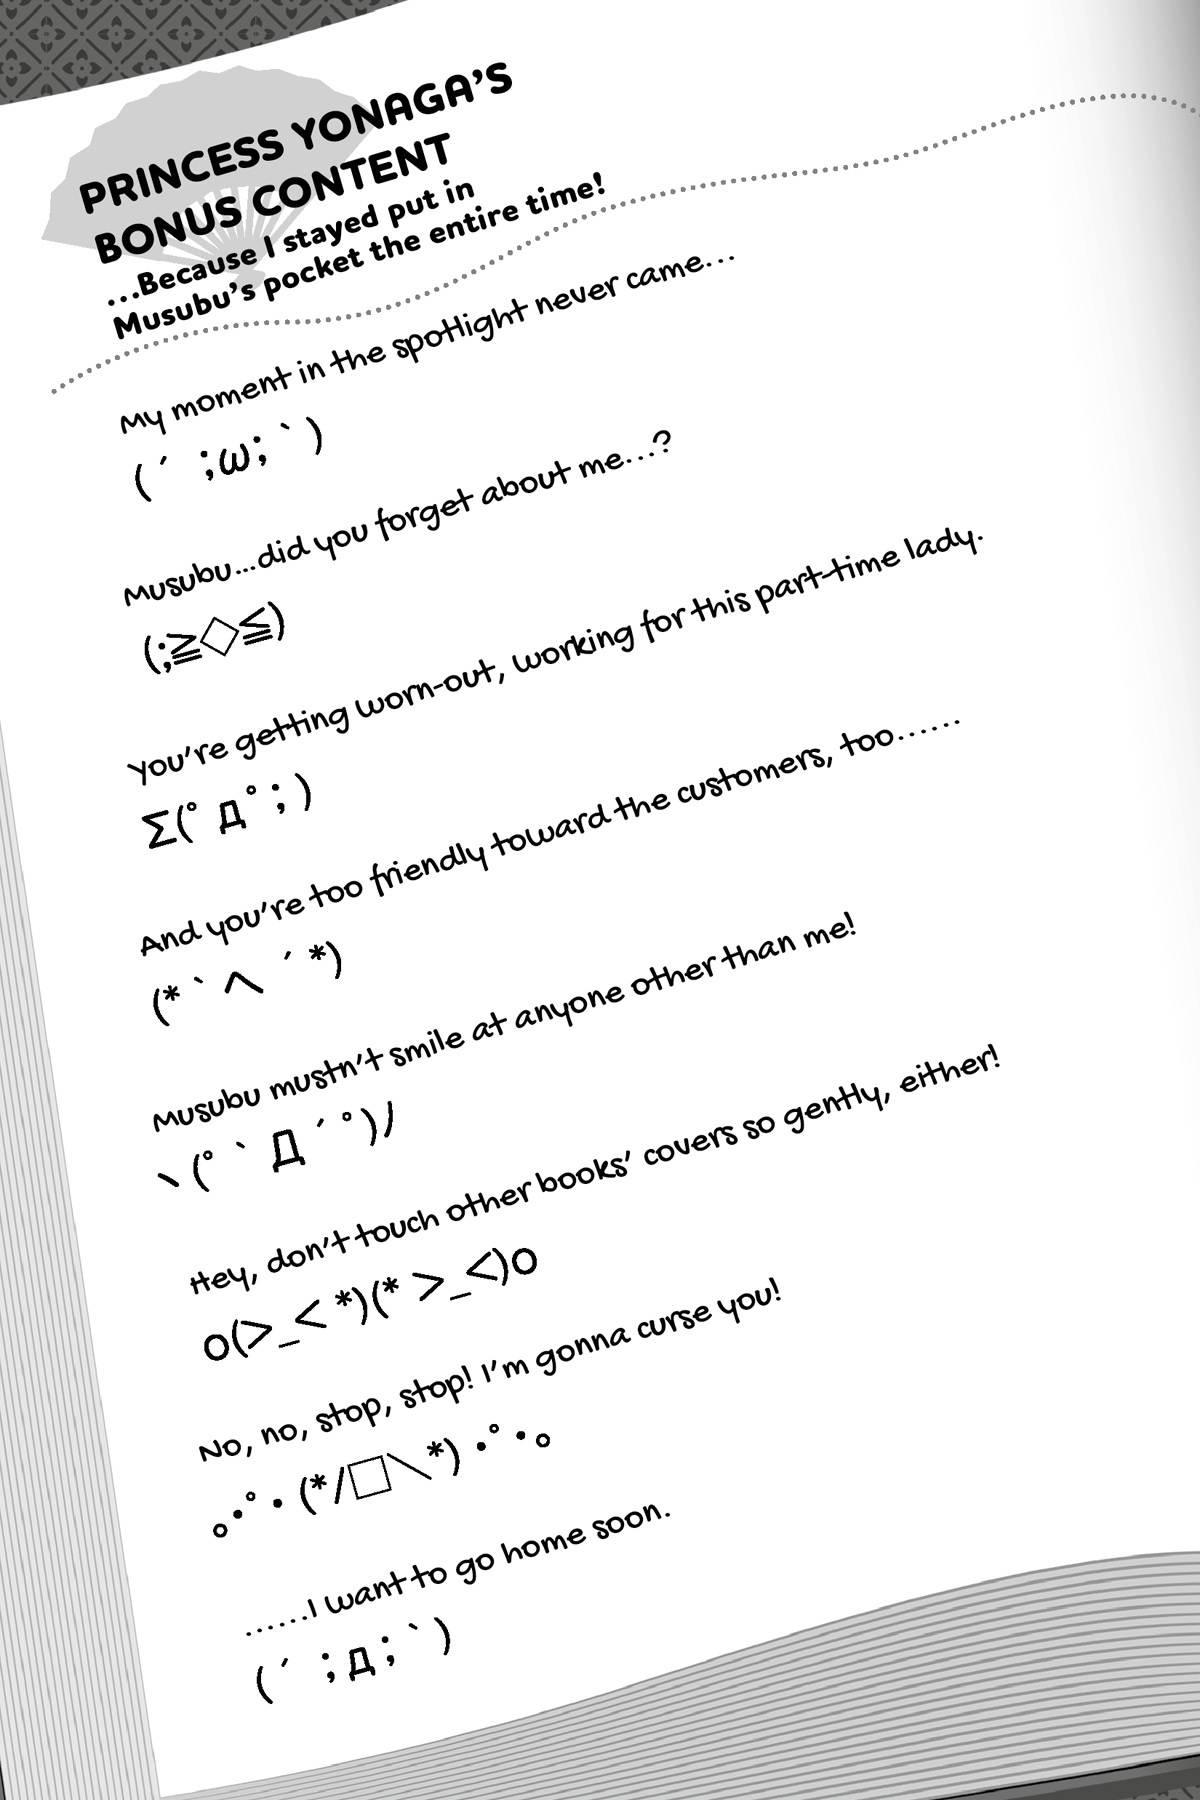 PRINCESS YONAGA'S
BONUS CONTENT
...Because I stayed put in
Musubu's pocket the entire time!
My moment in the spotlight never came...
(´ ;ω;｀)
Musubu...did you forget about me...?
(;≧◇≦)
You're getting worn-out, working for this part-time lady.
Σ(ﾟдﾟ;)
And you're too friendly toward the customers, too......
(*｀へ´*)
Musubu mustn't smile at anyone other than me!
ヽ(ﾟ｀Д´ﾟ)ﾉ
Hey, don't touch other books' covers so gently, either!
o(>_< *)(* >_<)o
No, no, stop, stop! I'm gonna curse you!
｡･ﾟ･(*/□＼*)･ﾟ･｡
......I want to go home soon.
(´ ;д;｀)